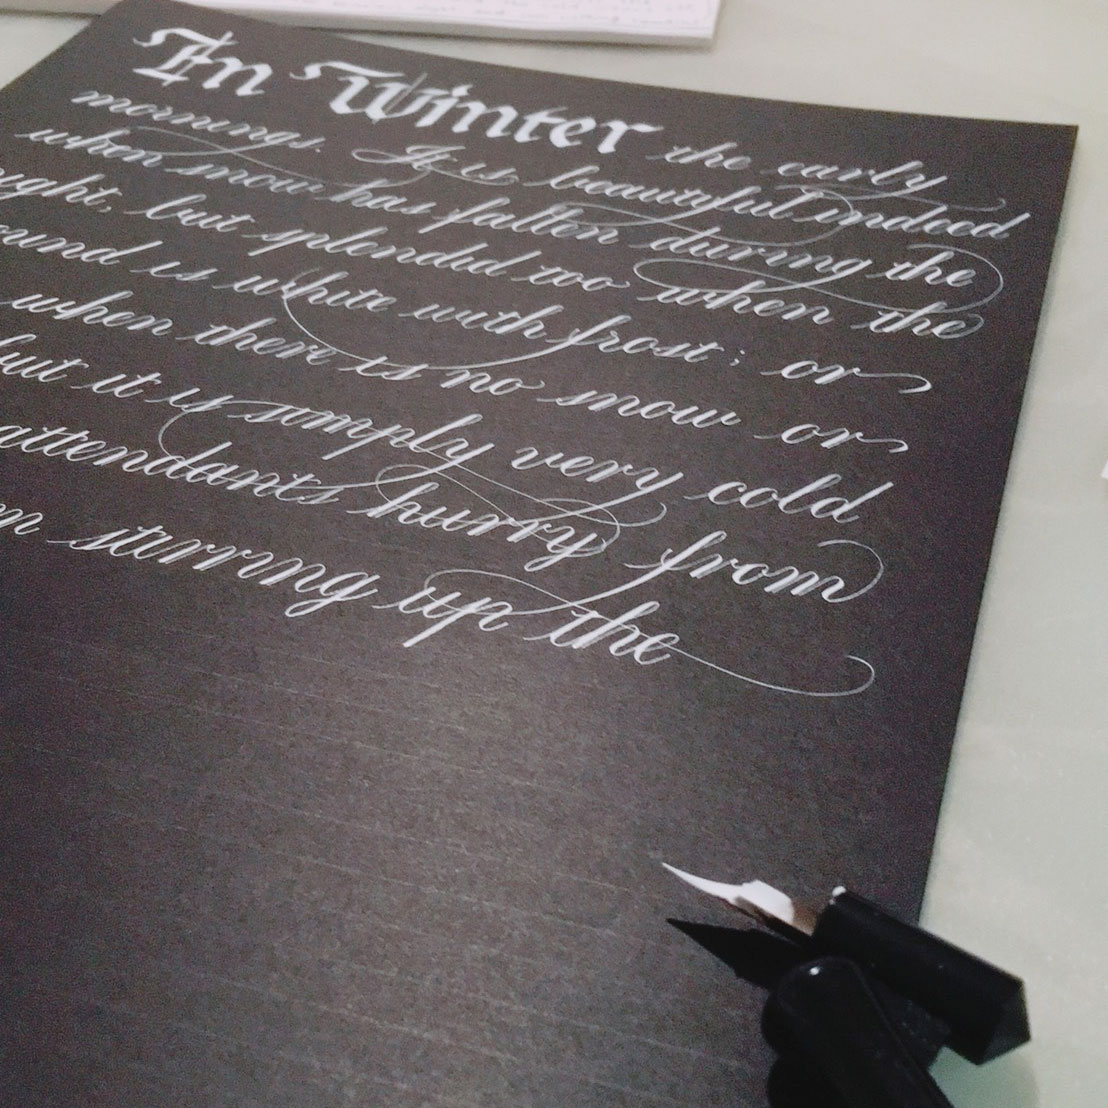 In Winter the early
mornings. It is beautiful indeed
when snow has fallen during the
ight, but splendid too when the
ound is white with frost; or
when there is no snow or
but it is simply very cold
attendants hurry from
m stirring up the